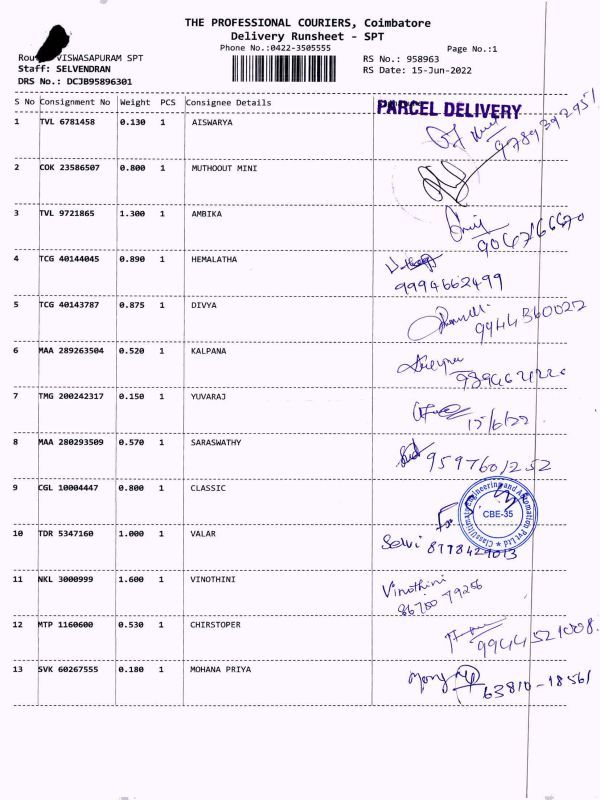 THE PROFESSIONAL COURIERS, Coimbatore
Delivery Runsheet - SPT
Phone No.:0422-3505555
Page No.:1
VISWASAPURAM SPT
RS No.: 958963
Staff: SELVENDRAN
RS Date: 15-Jun-2022
DRS No.: DCJB95896301
S No Consignment No Weight PCS Consignee Details
PARCEL DELIVERY
1 TVL 6781458 0.130 1 AISWARYA
9789392951
2 COK 23586507 0.800 1 MUTHOOUT MINI
3 TVL 9721865 1.300 1 AMBIKA
4 TCG 40144045 0.890 1 HEMALATHA
9994662499
5 TCG 40143787 0.875 1 DIVYA
9944360022
6 MAA 289263504 0.520 1 KALPANA
7 TMG 200242317 0.150 1 YUVARAJ
15/6/22
8 MAA 280293509 0.570 1 SARASWATHY
9597601252
9 CGL 10004447 0.800 1 CLASSIC
Engineering and Automation Pvt Ltd
CBE-35
For
10 TDR 5347160 1.000 1 VALAR
Selvi 8778429013
11 NKL 3000999 1.600 1 VINOTHINI
Vinothini
86700 79256
12 MTP 1160600 0.530 1 CHIRSTOPER
9944521008
13 SVK 60267555 0.180 1 MOHANA PRIYA
63810-18561